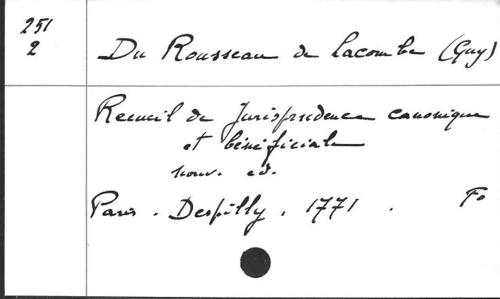 251
2
Du Rousseau de Lacombe (Guy)
Recueil de Jurisprudence canonique
et bénéficiale
nouv. ed.
Paris. Despilly. 1771. Fo